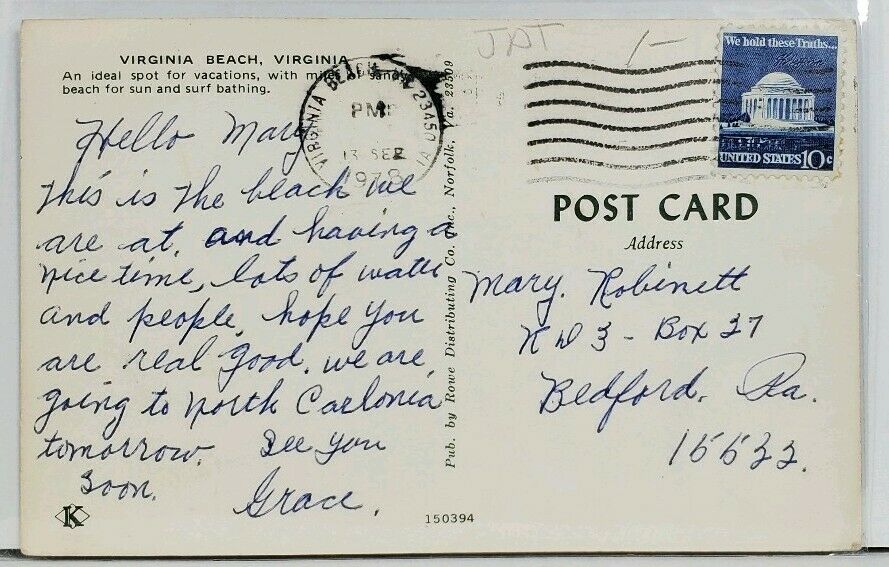 VIRGINIA BEACH, VIRGINIA
An ideal spot for vacations, with miles sandy
beach for sun and surf bathing.
Hello Mary
This is the beach we
are at and having a
nice time, lots of water
and people, hope you
are real good. we are
going to North Carlonia
tomorrow. See you
Soon.
Grace.
K
Pub. by Rowe Distributing Co. Inc., Norfolk, Va. 23509
150394
VIRGINIA BEACH VA 23450
PM
13 SEP
1978
JAT
1-
We hold these Truths...
UNITED STATES 10c
POST CARD
Address
Mary. Robinett
RD 3 - Box 37
Bedford. Pa.
15522.